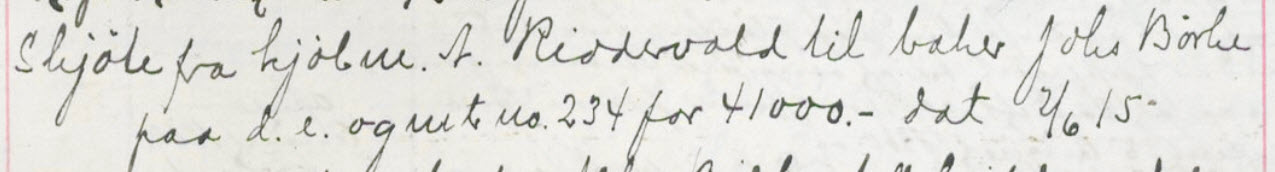 Skjöte fra kjöbm. A. Riddervold til baker Johs Børke
paa d. e. og mt. no. 234 for 41000.- dat 2/6 15